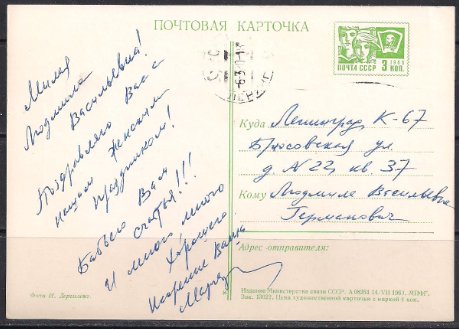 ПОЧТОВАЯ КАРТОЧКА
ПОЧТА СССР 3 КОП.
Милая
Людмила
Васильевна!
Поздравляю Вас с
нашим Женским
праздником!
Бабьего Вам
счастья!!!
И много много
хорошего
Искренне Ваша
Куда Ленинград К-67
ул.
д. № 22, кв. 37
Кому Людмиле Васильевне
Германович
Адрес отправителя:
Фото И.
Издание Министерства связи СССР. 1967. МТФГ.
Цена художественной карточки с маркой 4 коп.